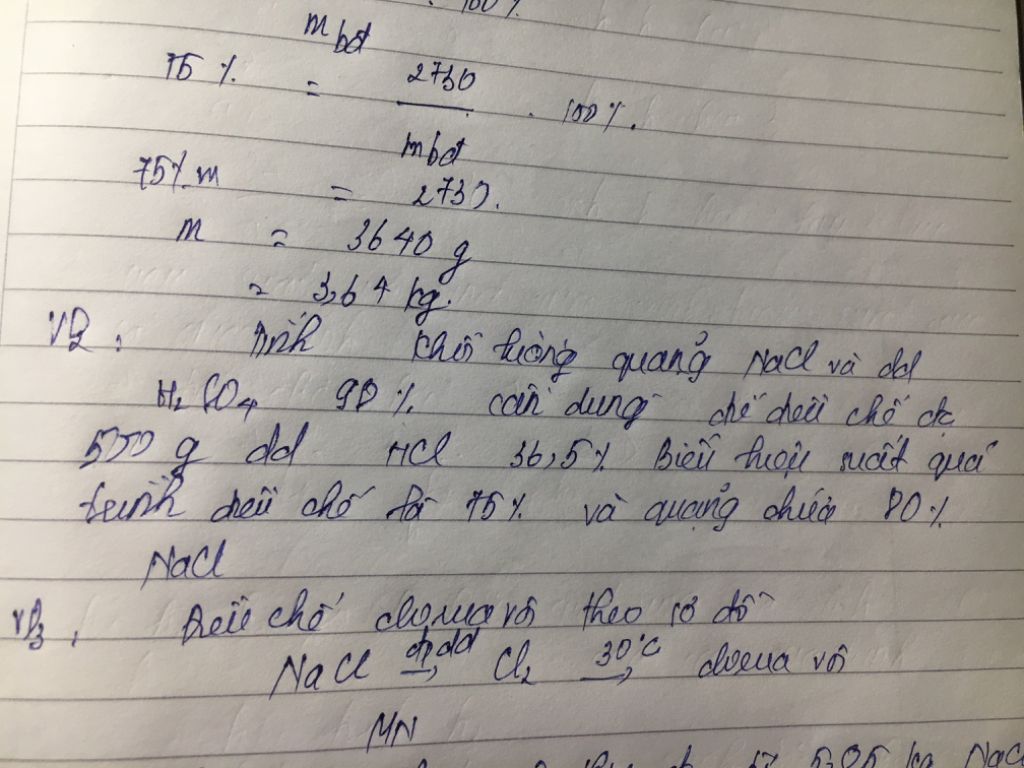 . 100%
m bđ
75% = 2730 / m bđ . 100%.
75% m = 2730.
m = 3640 g
= 3,64 kg.
VD2: Tính khối lượng quặng NaCl và dd
H2SO4 90% cần dùng để điều chế đc
500 g dd HCl 36,5% Biết hiệu suất quá
trình điều chế là 75% và quặng chứa 80%
NaCl
VD3, Điều chế clorua vôi theo sơ đồ
NaCl đpdd → Cl2 30°C → clorua vôi
MN
5,05 kg NaCl